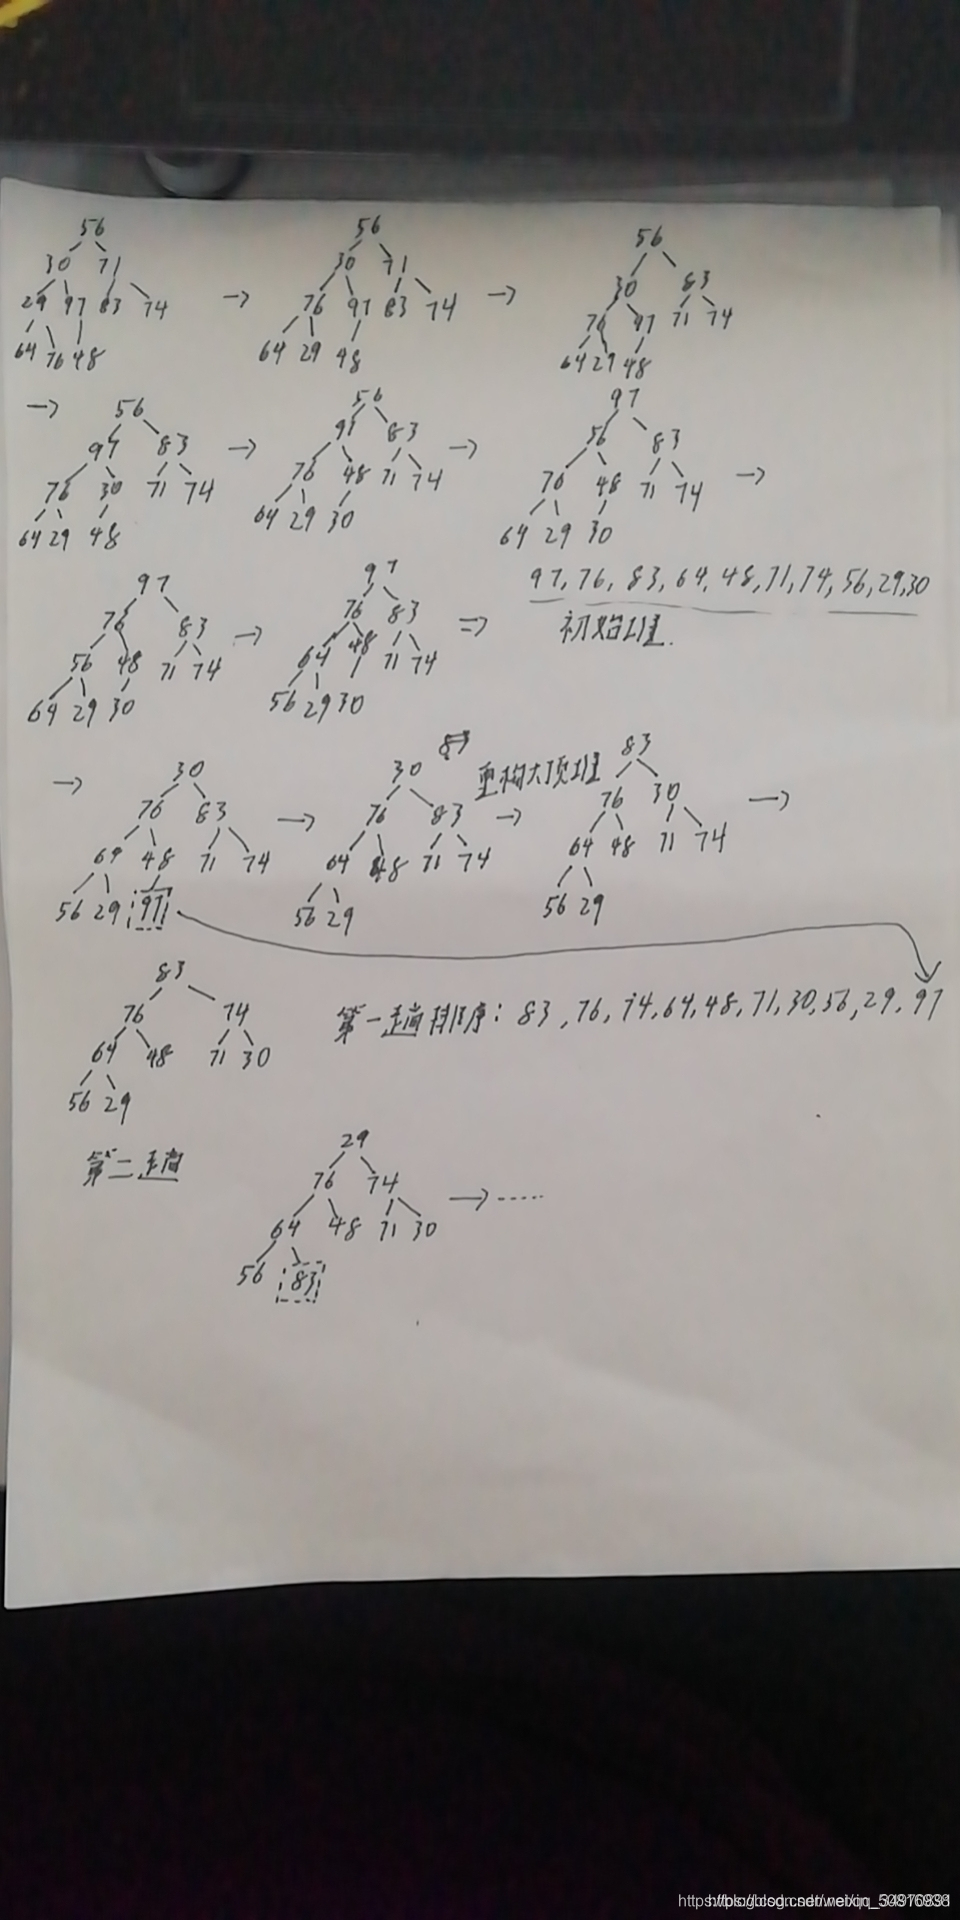 56
30 71
29 97 83 74
64 76 48
→
56
30 71
76 97 83 74
64 29 48
→
56
30 83
76 97 71 74
64 29 48
→
56
97 83
76 30 71 74
64 29 48
→
56
97 83
76 48 71 74
64 29 30
→
97
56 83
76 48 71 74
64 29 30
→
97
76 83
56 48 71 74
64 29 30
→
97
76 83
64 48 71 74
56 29 30
⇒
97, 76, 83, 64, 48, 71, 74, 56, 29, 30
初始堆.
→
30
76 83
64 48 71 74
56 29 97
→
30
76 83
64 48 71 74
56 29
重构大顶堆
→
83
76 30
64 48 71 74
56 29
→
83
76 74
64 48 71 30
56 29
第一趟排序: 83, 76, 74, 64, 48, 71, 30, 56, 29, 97
第二趟
29
76 74
64 48 71 30
56 83
→ ......